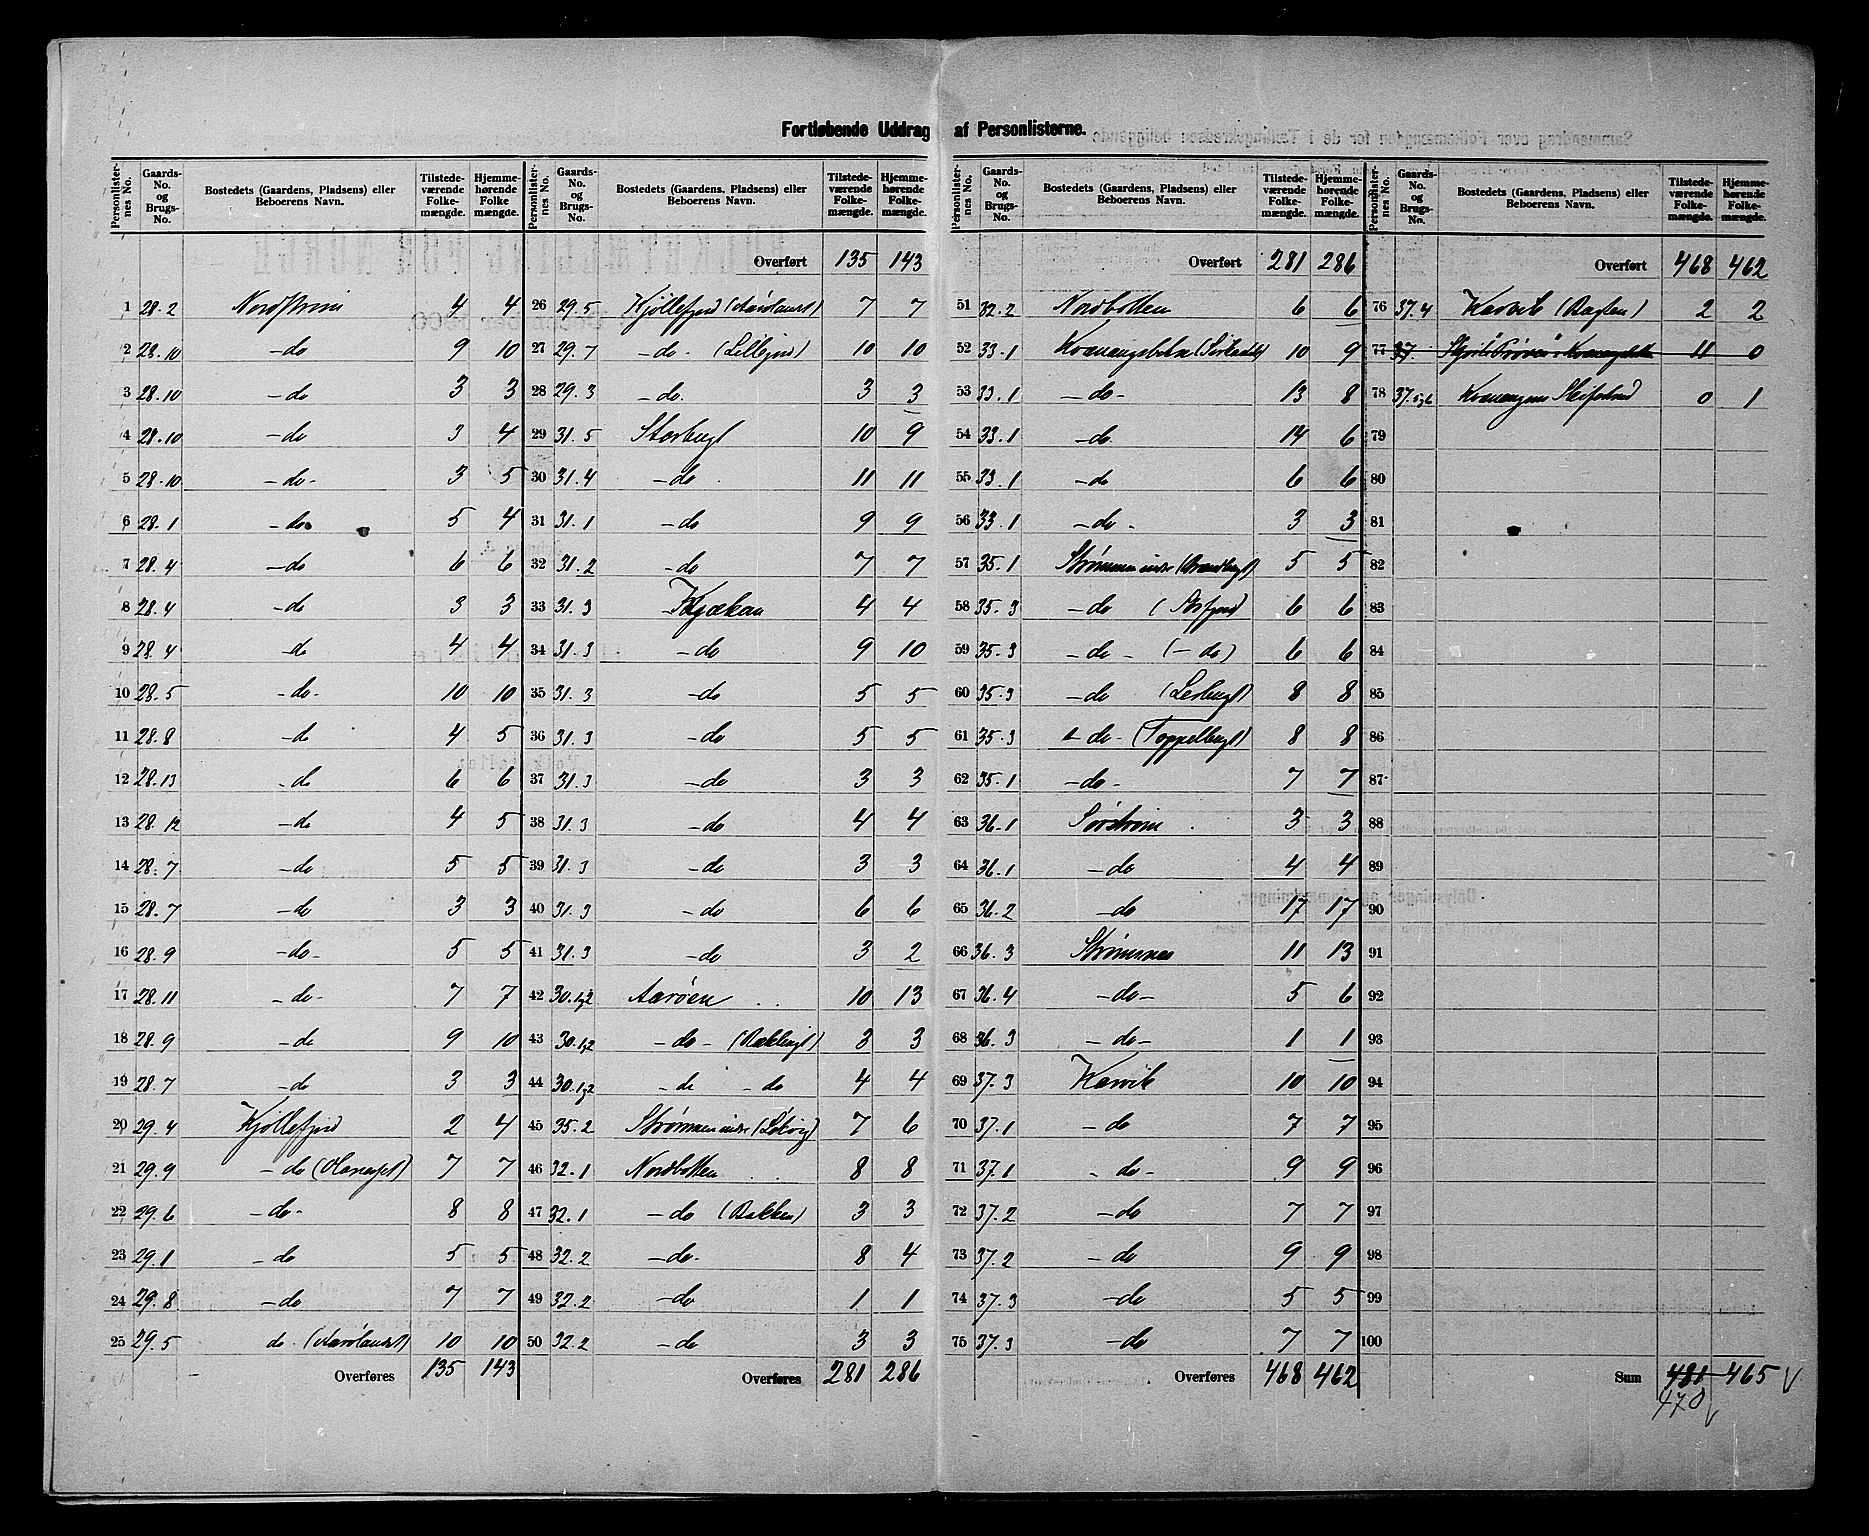 Fortløbende Uddrag af Personlisterne.
Personlister-nes No. | Gaards-No. og Brugs-No. | Bostedets (Gaardens, Pladsens) eller Beboerens Navn. | Tilstede-værende Folke-mængde. | Hjemme-hørende Folke mængde.
1 28.2 Nordstrøm 4 4
2 28.10 - do 9 10
3 28.10 - do 3 3
4 28.10 - do 3 4
5 28.10 - do - 3 5
6 28.1 - do 5 4
7 28.4 - do 6 6
8 28.4 - do 3 3
9 28.4 - do 4 4
10 28.5 - do - 10 10
11 28.8 - do 4 5
12 28.13 - do 6 6
13 28.12 - do 4 5
14 28.7 - do 5 5
15 28.7 - do 3 3
16 28.9 - do - 5 5
17 28.11 - do - 7 7
18 28.9 - do 9 10
19 28.7 - do 3 3
20 29.4 Kjøllefjord 2 4
21 29.9 - do 7 7
22 29.6 - do - 8 8
23 29.1 - do 5 5
24 29.8 - do 7 7
25 29.5 do. 10 10
Overføres 135 143
Personlister-nes No. | Gaards-No. og Brugs-No. | Bostedets (Gaardens, Pladsens) eller Beboerens Navn. | Tilstede-værende Folke-mængde. | Hjemme-hørende Folke-mængde.
Overført 135 143
26 29.5 Kjøllefjord 7 7
27 29.7 - do - (Lillefjord) 10 10
28 29.3 - do. 3 3
29 31.5 Storbugt 10 9
30 31.4 - do 11 11
31 31.1 - do 9 9
32 31.2 - do 7 7
33 31.3 Kjækan 4 4
34 31.3 - do 9 10
35 31.3 - do 5 5
36 31.3 - do 5 5
37 31.3 - do 3 3
38 31.3 - do 4 4
39 31.3 - do 3 3
40 31.3 - do 6 6
41 31.3 - do 3 2
42 30.1,2 Aarøen 10 13
43 30.1,2 - do - 3 3
44 30.1,2 - do - do 4 4
45 35.2 Strømmen indre (Løkvig) 7 6
46 32.1 Nordbotten 8 8
47 32.1 - do (Bakken) 3 3
48 32.2 - do - 8 4
49 32.2 - do 1 1
50 32.2 - do 3 3
Overføres 281 286
Personlister-nes No. | Gaards-No. og Brugs-No. | Bostedets (Gaardens, Pladsens) eller Beboerens Navn. | Tilstede-værende Folke-mængde. | Hjemme-hørende Folke-mængde.
Overført 281 286
51 32.2 Nordbotten 6 6
52 33.1 10 9
53 33.1 - do - 13 8
54 33.1 - do 14 6
55 33.1 - do 6 6
56 33.1 - do - 3 3
57 35.1 Strømmen indre 5 5
58 35.3 - do 6 6
59 35.3 - do - (- do) 6 6
60 35.3 - do 8 8
61 35.3 - do - (Toppelbugt) 8 8
62 35.1 - do - 7 7
63 36.1 Sørstrøm 3 3
64 36.1 - do 4 4
65 36.2 - do 17 17
66 36.3 Strømsnes 11 13
67 36.4 - do - 5 6
68 36.3 - do - 1 1
69 37.3 Karvik 10 10
70 37.1 - do 7 7
71 37.1 - do - 9 9
72 37.2 - do 7 7
73 37.2 - do 9 9
74 37.3 - do 5 5
75 37.3 - do 7 7
Overføres 468 462
Personlister-nes No. | Gaards-No. og Brugs-No. | Bostedets (Gaardens, Pladsens) eller Beboerens Navn. | Tilstede-værende Folke-mængde. | Hjemme-hørende Folke-mængde.
Overført 468 462
76 37.4 Karvik 2 2
77 37 11 0
78 37. Kvænangens 0 1
79
80
81
82
83
84
85
86
87
88
89
90
91
92
93
94
95
96
97
98
99
100
Sum 481 465
470